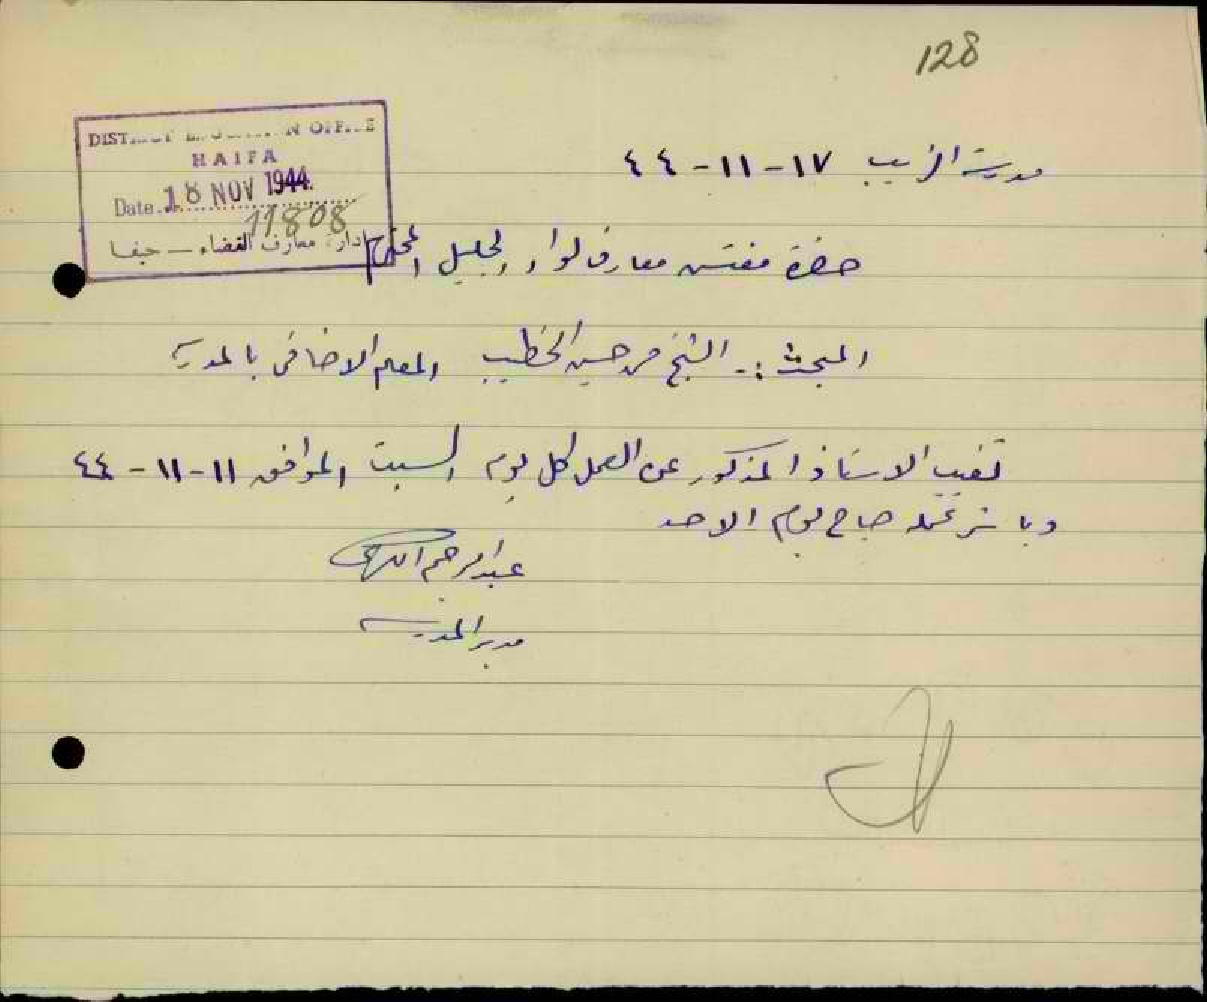 128
DISTRICT EDUCATION OFFICE
HAIFA
Date 18 NOV 1944
11808
ادارة معارف القضاء — حيفا
مدرسة الزيب ١٧-١١-٤٤
حضرة مفتش معارف لواء الجليل المحترم
المبحث :- الشيخ حسين الخطيب المعلم الاضافي بالمدرسة
تغيب الاستاذ المذكور عن العمل كل يوم السبت الموافق ١١-١١-٤٤
وباشر عمله صباح يوم الاحد
عبد الرحيم
مدير المدرسة